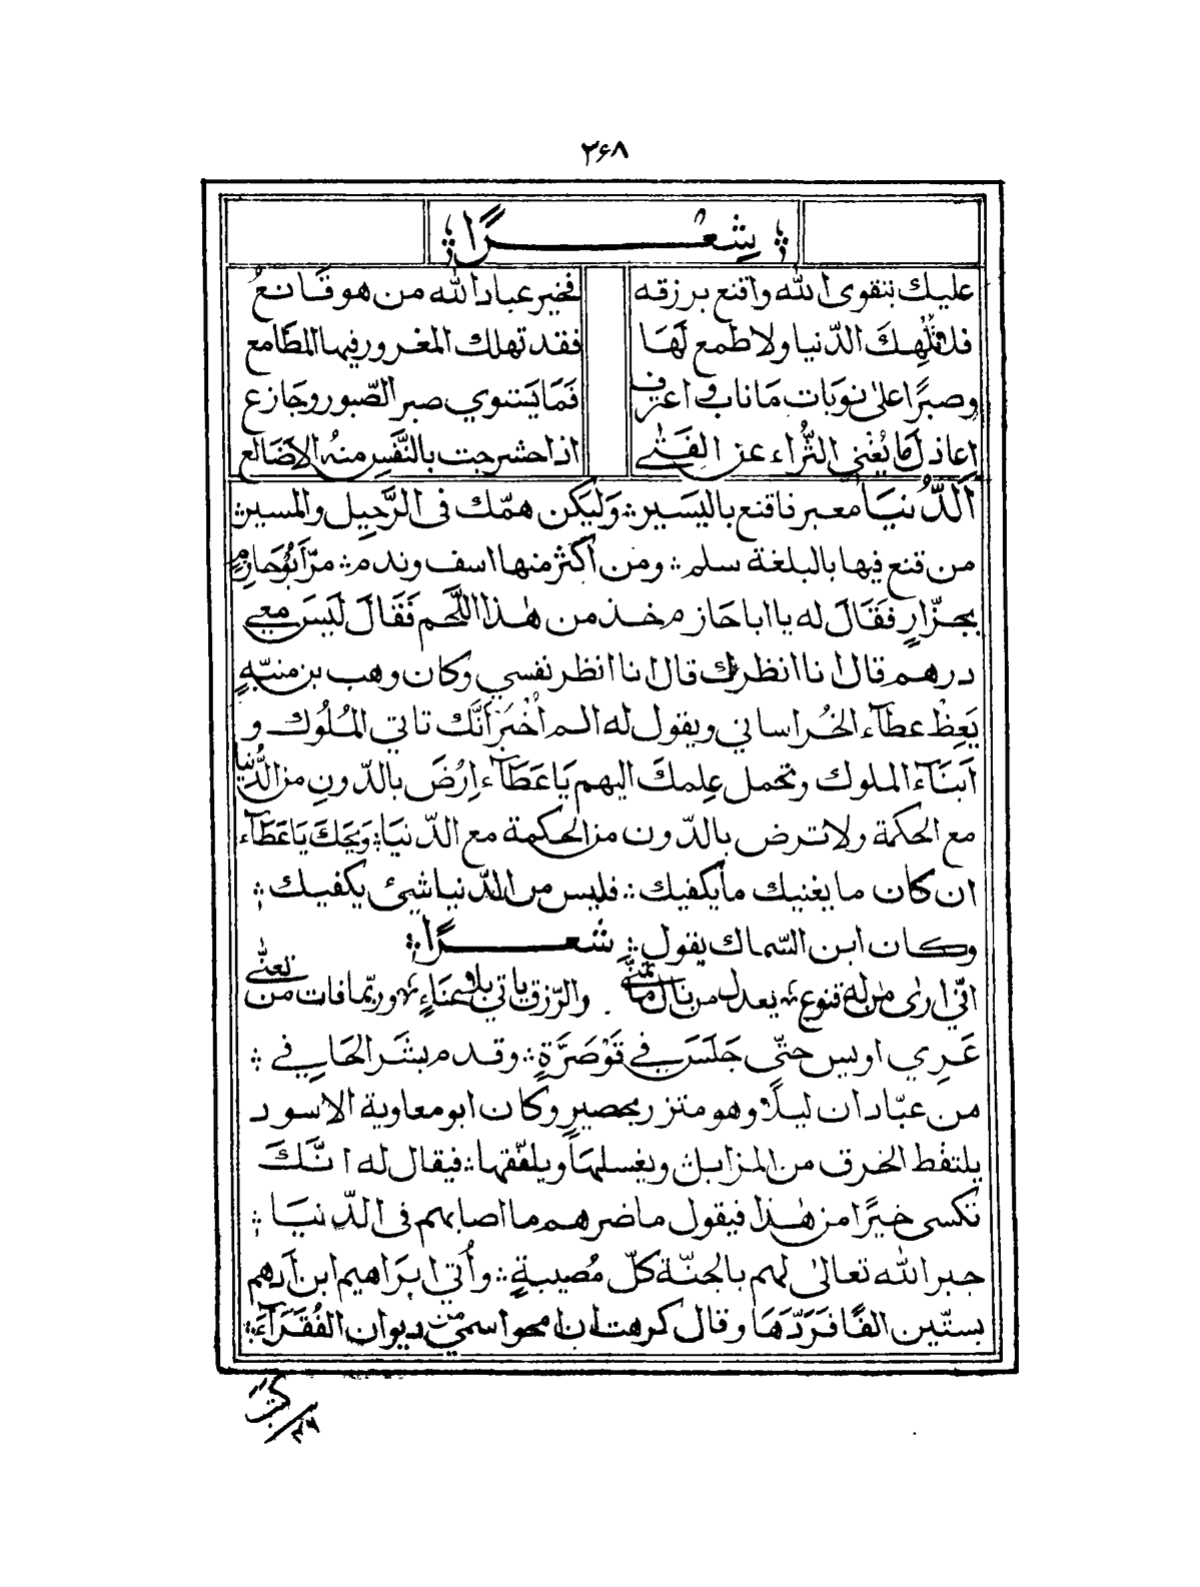 ۲۶۸
شِعْرًا
عليك بتقوى الله واقنع برزقه فخير عباد الله من هو قَانعُ
فلا تُلْهِكَ الدّنيا ولا طمع لَهَا فقد تهلك المغرور فيها المطامع
وصبرًا على نوبَات مَا ناب واعترف فَمَا يَستوي صبر الصّبور وجَازع
اعاذل مَا يُغْني الثَّراء عن الفَتٰى اذا حشرجت بالنَّفسِ منهُ الاضَالع
اَلدُّنيَا معبر فاقنع باليَسير؛ وَليَكن همّك فى الرَّحِيل والمسير؛
من قنع فيها بالبلغة سلم؛ ومن أكثر منها اسف وندم؛ مرّ أبُو حَازم
بجزّارٍ فَقَالَ له يا ابا حَازم خذ من هٰذا اللَّحم فَقَالَ لَيسَ معي
درهم قال انا انظرك قال انا انظر نفسي وكان وهب بن منبّهٍ
يَعِظُ عطآء الخُراساني ويقول له الم أُخْبَرْ أنَّك تاتي المُلُوك و
ابنَآءَ الملوك وتحمل عِلمكَ اليهم يَا عَطَآء اِرْضَ بالدّونِ من الدُّنيا
مع الحكمة ولا ترض بالدّون من الحكمة مع الدّنيَا؛ وَيحَكَ يَا عَطَآء
ان كان ما يغنيك ما يكفيك؛ فليس من الدّنيا شئ يكفيك؛
وكان ابن السّماك يقول؛ شعرًا؛
انّي ارى من له قنوع يعدل من نال ما تمنّى والرّزق ياتي بلا عَنَاءٍ وربّما فات من تعنّى
عَرِي اويس حتّى جَلَسَ في قَوْصَرَّةٍ؛ وقدم بشر الحَافي؛
من عبّادان ليلًا وهو متزر بحصيرٍ وكان ابو معاوية الاسود
يلتقط الخرق من المزابل؛ ويغسلهَا ويلفّقها؛ فيقال له انَّكَ
تكسى خيرًا من هٰذا فيقول ما ضرهم ما اصابهم فى الدّنيَا؛
جبر الله تعالىٰ لهم بالجنّة كلّ مُصيبةٍ؛ وأُتي ابرَاهيم ابن ادهم
بستّين الفًا فَرَدَّهَا وقال كرهت ان امحو اسمي من ديوان الفُقَرَآءَ؛